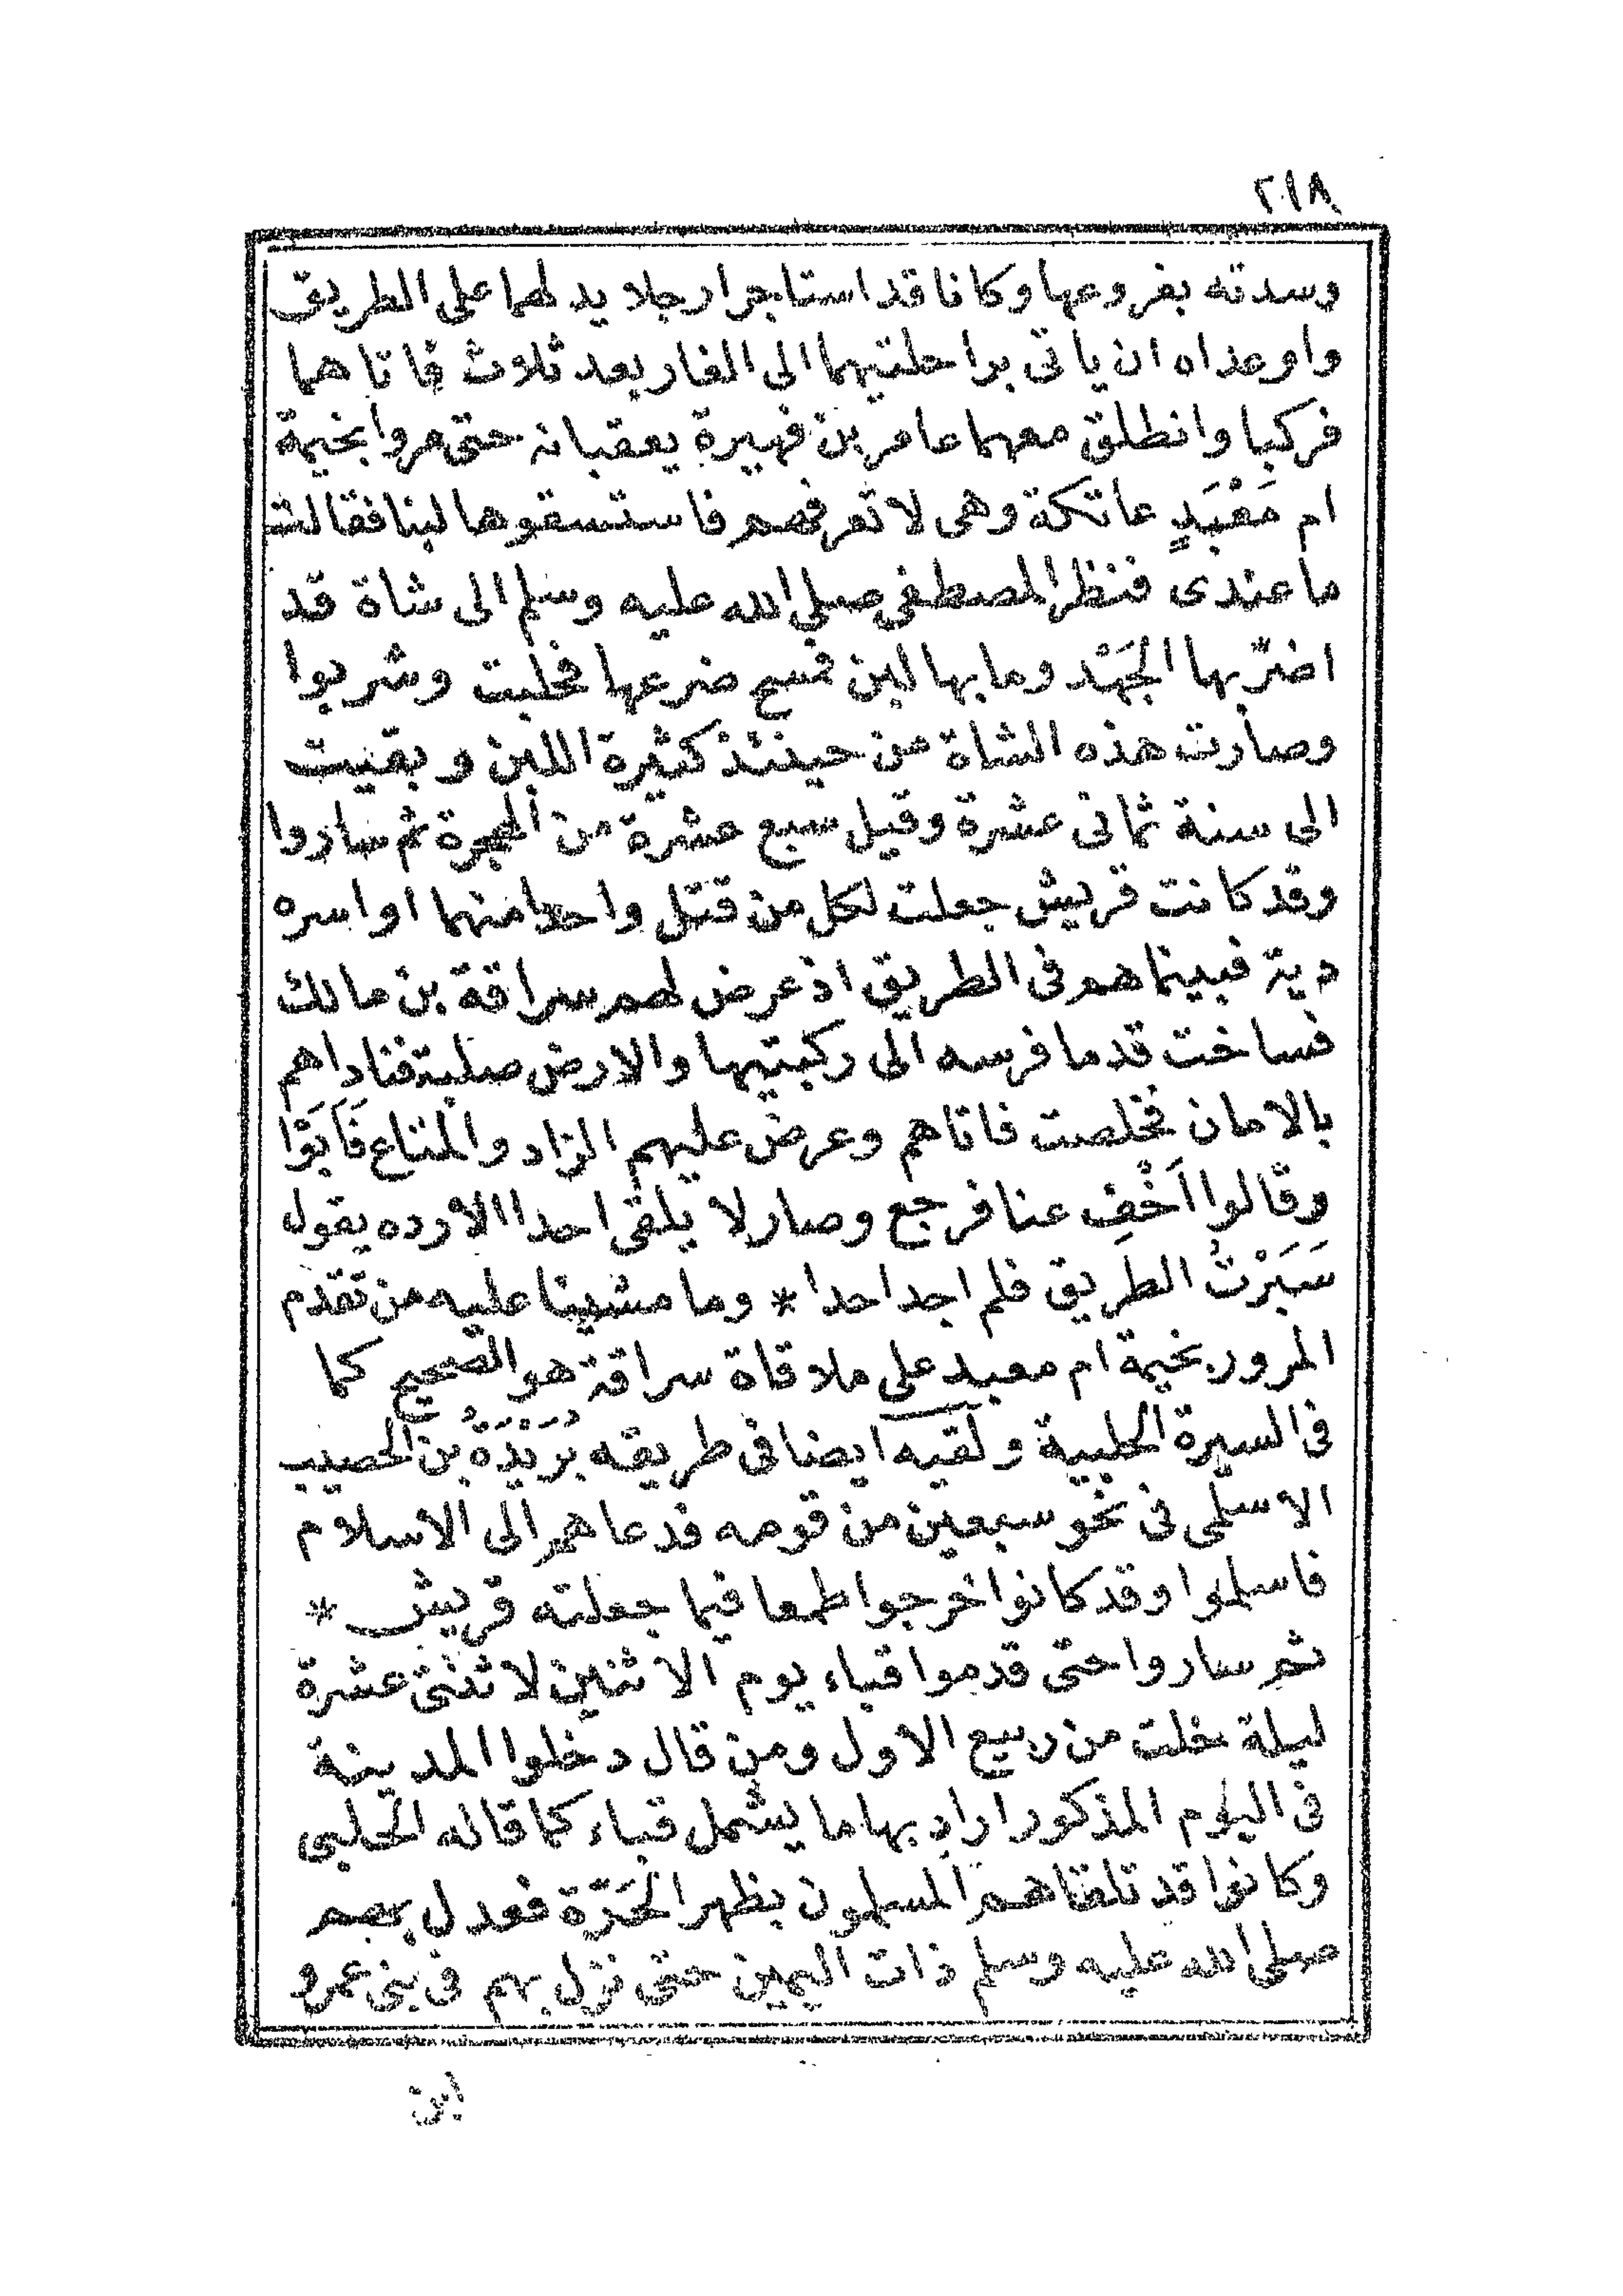 ٢١٨
وسدته بفروعها وكانا قد استاجرا رجلا يدلهما على الطريق
واوعداه ان ياتى براحلتيهما الى الغار بعد ثلاث فاتاهما
فركبا وانطلق معهما عامر بن فهيرة يعقبانه حتى مروا بخيمة
ام مَعْبَدٍ عاتكة وهى لا تعرفهم فاستسقوها لبنا فقالت
ما عندى فنظر المصطفى صلى الله عليه وسلم الى شاة قد
اضرّ بها الجَهْد وما بها لبن فمسح ضرعها فحلبت وشربوا
وصارت هذه الشاة من حينئذ كثيرة اللبن وبقيت
الى سنة ثمانى عشرة وقيل سبع عشرة من الهجرة ثم ساروا
وقد كانت قريش جعلت لكل من قتل واحدا منهما او اسره
دية فبينما هم فى الطريق اذ عرض لهم سراقة بن مالك
فساخت قدما فرسه الى ركبتيها والارض صلبة فناداهم
بالامان فخلصت فاتاهم وعرض عليهم الزاد والمتاع فَاَبَوْا
وقالوا اَخْفِ عنا فرجع وصار لا يلقى احدا الا رده يقول
سَبَرْتُ الطريق فلم اجد احدا * وما مشينا عليه من تقدم
المرور بخيمة ام معبد على ملاقاة سراقة هو الصحيح كما
فى السيرة الحلبية ولقيه ايضا فى طريقه بُرَيْدَةُ بن الحصيب
الاسلمى فى نحو سبعين من قومه فدعاهم الى الاسلام
فاسلموا وقد كانوا خرجوا طمعا فيما جعلته قريش *
ثم ساروا حتى قدموا قباء يوم الاثنين لاثنتى عشرة
ليلة خلت من ربيع الاول ومن قال دخلوا المدينة
فى اليوم المذكور اراد بها ما يشمل قباء كما قاله الحلبى
وكانوا قد تلقاهم المسلمون بظهر الحَرّة فعدل بهم
صلى الله عليه وسلم ذات اليمين حتى نزل بهم فى بنى عمرو
ابن